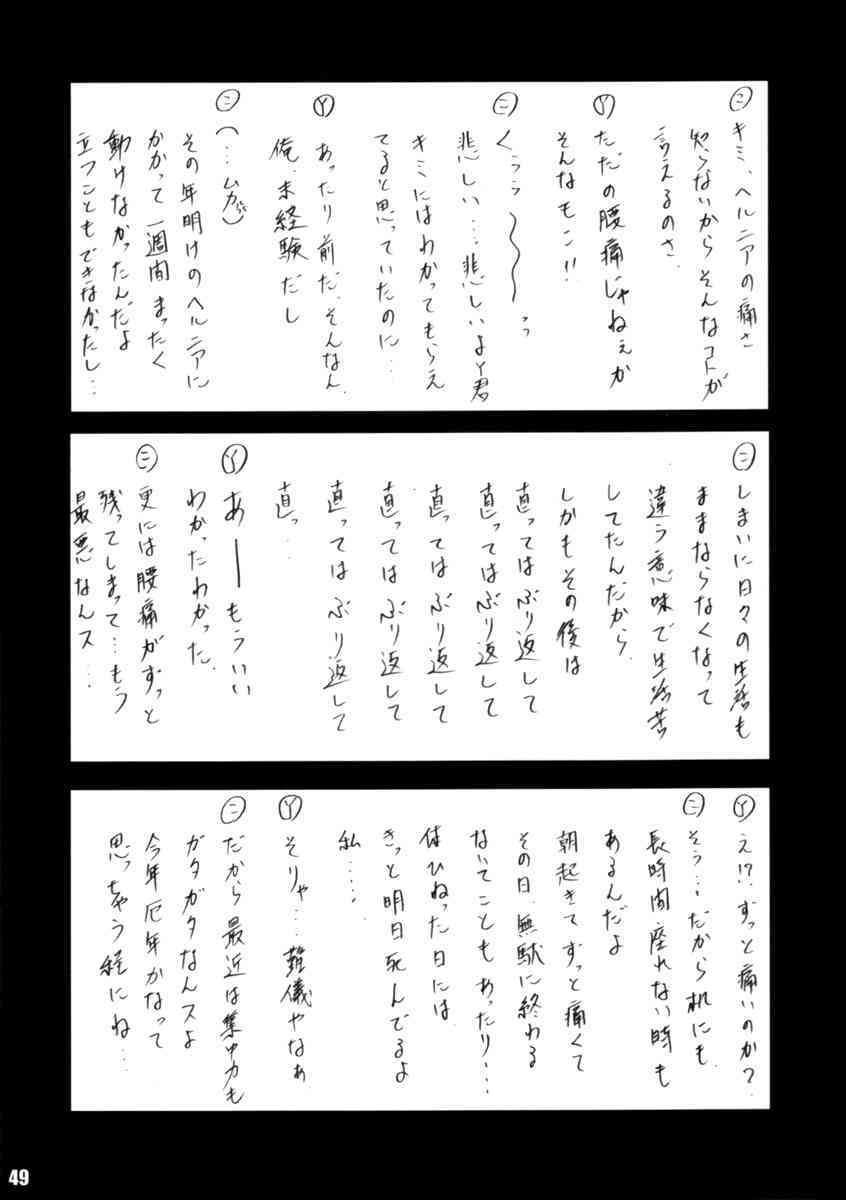 ㊁キミ、ヘルニアの痛さ
知らないからそんなコトが
言えるのさ.
Ⓨただの腰痛じゃねぇか
そんなもこ!!
㊁くぅぅ〜〜〜っっ
悲しい…悲しいよY君
キミにはわかってもらえ
てると思っていたのに…
Ⓨあったり前だ、そんなん.
俺、未経験だし
㊁(…ムカ)
その年明けのヘルニアに
かかって一週間まったく
動けなかったんだよ
立つこともできなかったし…
㊁しまいに日々の生活も
ままならなくなって
違う意味で生活苦
してたんだから.
しかもその後は
直ってはぶり返して
直ってはぶり返して
直ってはぶり返して
直ってはぶり返して
直ってはぶり返して
直っ…
Ⓨあーーもういい
わかったわかった.
㊁更には腰痛がずっと
残ってしまって…もう
最悪なんス…
Ⓨえ!?ずっと痛いのか?
㊁そう…だから机にも
長時間座れない時も
あるんだよ
朝起きてずっと痛くて
その日、無駄に終わる
ないてこともあったり…
体ひねった日には
きっと明日死んでるよ
私…
Ⓨそりゃ…難儀やなぁ
㊁だから最近は集中力も
ガタガタなんスよ
今年厄年かなって
思っちゃう経にね…
49